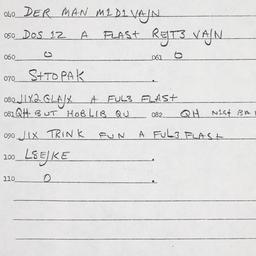 040 DER MAN M1D1 VAJN
050 DOS 1Z A FLAS+ REJT3 VAJN
060 O 061 O
070 S++OPAK .
080 JIX2 GLAJX A FUL3 FLAS+
081 QH BUT HOBLIB QU 082 QH N1S+
090 JIX TRINK FUN A FUL3 FLAS+
100 LSEJKE .
110 O .